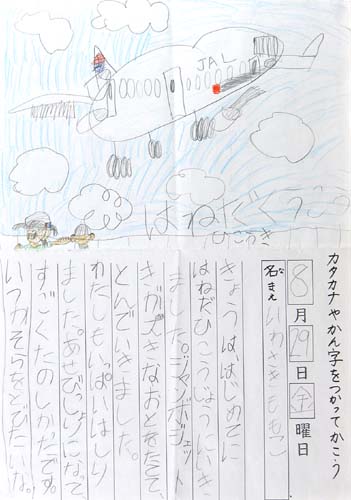 JAL
はねだくうこう
ひこうき
カタカナやかん字をつかってかこう
8月29日金曜日
名まえ
な
いわさきももこ
きょうははじめてに
はねだひこうじょうにいき
ました。ジャンボジェット
きがズきなおとをたてて、
とんでいきました。
わたしもいっぱいはしり
ました。あせびっしょりになって
すごくたのしかたです。
いつかそらをとびたいな。